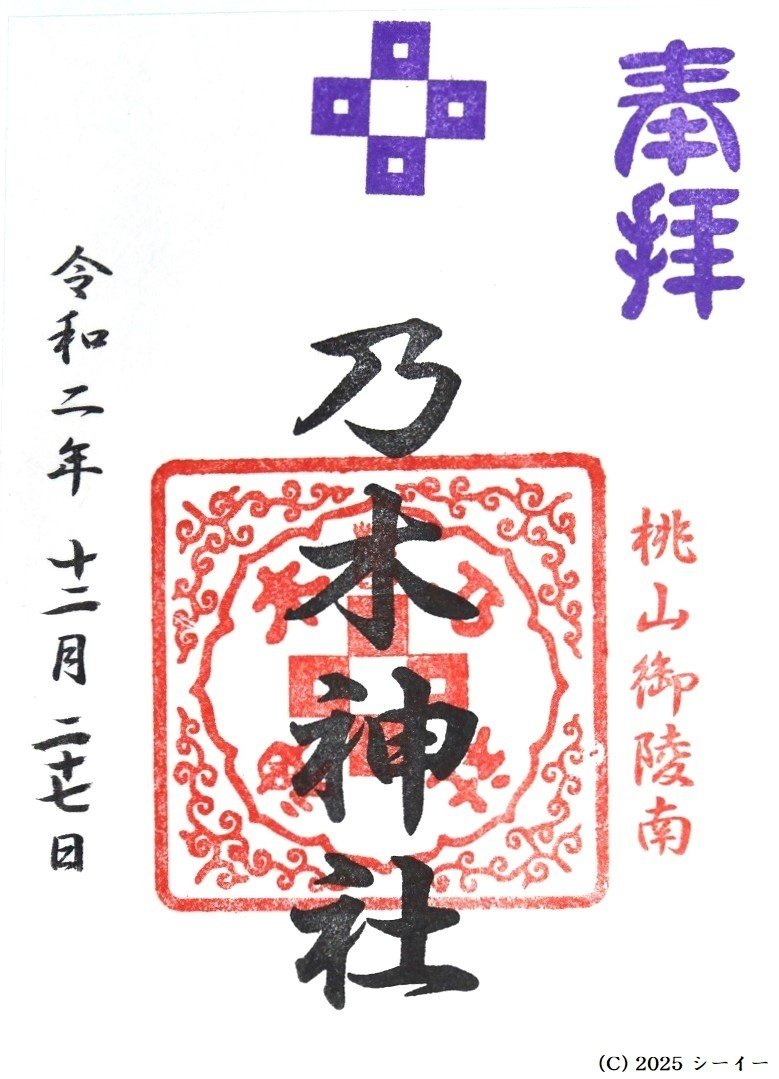 奉拝
桃山御陵南
乃木神社
令和二年 十二月 二十七日
(C) 2025 シーイー